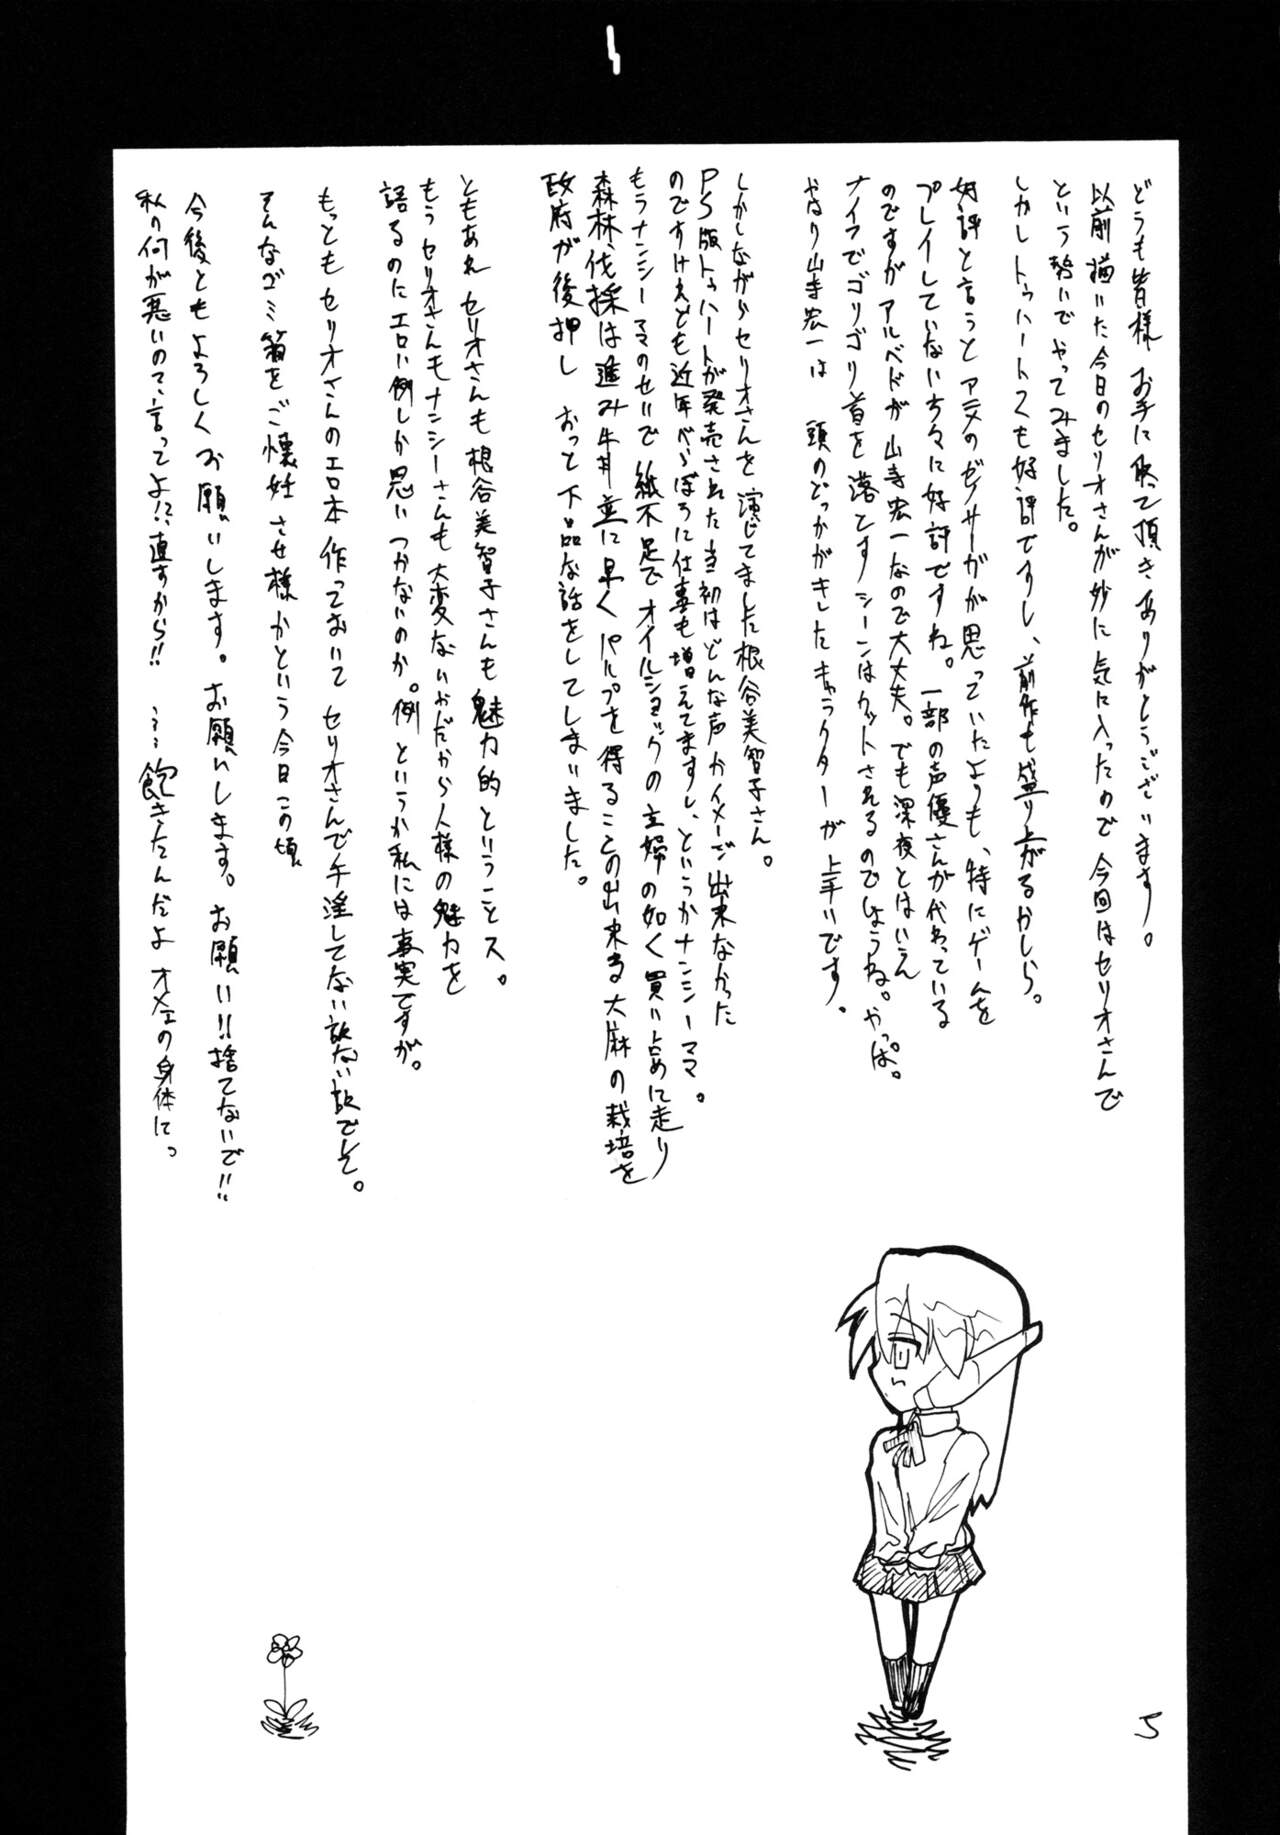 どうも皆様 お手に取って頂きありがとうございます。
以前描いた今日のセリオさんが妙に気に入ったので今回はセリオさんで
という勢いでやってみました。
しかしトゥハート2も好評ですし、前作も盛り上がるかしら。
好評と言うとアニメのゼノサーガが思っていたよりも、特にゲームを
プレイしていない方々に好評ですね。一部の声優さんが代わっている
のですがアルベドが山寺宏一なので大丈夫。でも深夜とはいえ
ナイフでゴリゴリ首を落とすシーンはカットされるのでしょうね。やっぱ。
やはり山寺宏一は 頭のどっかがキレたキャラクターが上手いです。
しかしながらセリオさんを演じてました根谷美智子さん。
PS版トゥハートが発売された当初はどんな声かイメージ出来なかった
のですけれども近年べらぼうに仕事も増えてますし、というかナンシーママ。
もうナンシーママのせいで紙不足でオイルショックの主婦の如く買い占めに走り
森林伐採は進み牛丼並に早くパルプを得ることの出来る大麻の栽培を
政府が後押し おっと下品な話をしてしまいました。
ともあれセリオさんも根谷美智子さんも魅力的ということス。
もうセリオさんもナンシーさんも大変ないかだから人様の魅力を
語るのにエロい例しか思いつかないのか。例というか私には事実ですが。
もっともセリオさんのエロ本作っておいてセリオさんで手淫してない訳ない訳でして。
そんなゴミ箱をご懐妊させ様かという今日この頃
今後ともよろしくお願いします。お願いします。お願い!!捨てないで!!
私の何が悪いのて、言ってよ!?直すから!! ……飽きたんだよオメェの身体にっ
5